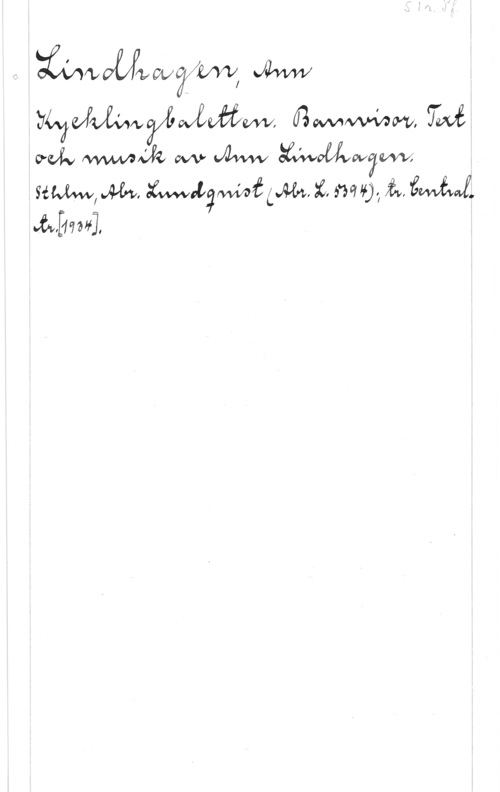 Lindhagen, Ann
Kycklingbaletten. Barnvisor. Text
och musik av Ann Lindhagen.
Sthlm, Abr. Lundqvist (Abr. L. 5394); tr. Central-
tr. [1934].